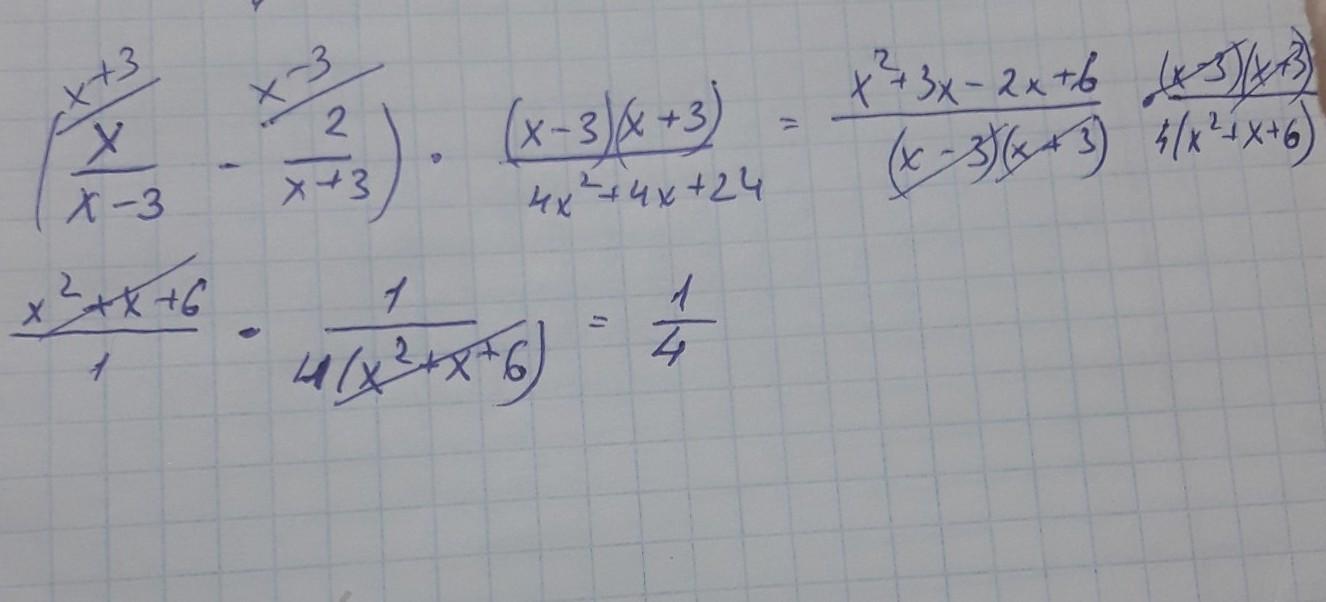 (x/(x-3) ^{x+3} - 2/(x+3) ^{x-3}) · (x-3)(x+3)/(4x²+4x+24) = (x²+3x-2x+6)/((x-3)(x+3)) · (x-3)(x+3)/(4(x²+x+6))
(x²+x+6)/1 · 1/(4(x²+x+6)) = 1/4